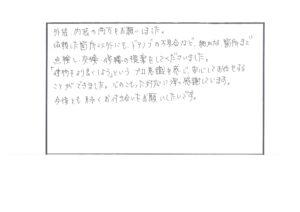 外装、内装の両方をお願いしました。
依頼した箇所以外にも、ドアノブの不具合など、細かな箇所まで
点検し、交換・修繕の提案をしてくださいました。
"建物をより良くしよう"という プロ意識を感じ、安心してお任せする
ことができました。心のこもった対応に深く感謝しています。
今後とも末永くお付き合いをお願いしたいです。